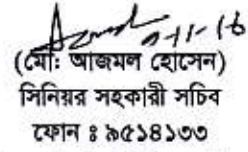 (মোঃ আজমল হোসেন)
সিনিয়র সহকারী সচিব
ফোন ঃ ৯৫১৪১৩৩